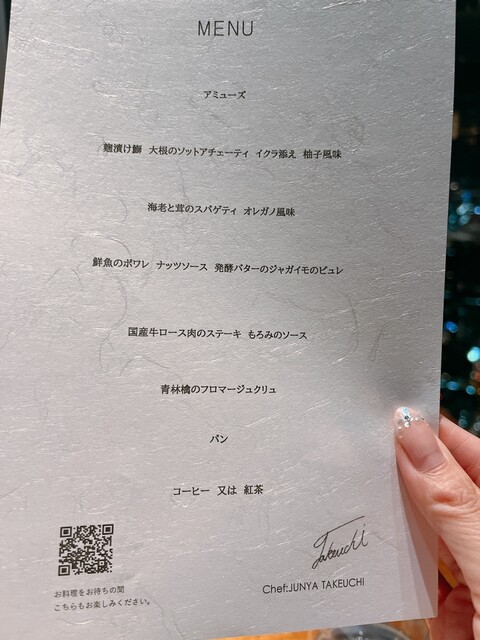 MENU
アミューズ
麹漬け鰤 大根のソットアチェーティ イクラ添え 柚子風味
海老と茸のスパゲティ オレガノ風味
鮮魚のポワレ ナッツソース 発酵バターのジャガイモのピュレ
国産牛ロース肉のステーキ もろみのソース
青林檎のフロマージュクリュ
パン
コーヒー 又は 紅茶
Takeuchi
Chef:JUNYA TAKEUCHI
お料理をお待ちの間
こちらもお楽しみください。